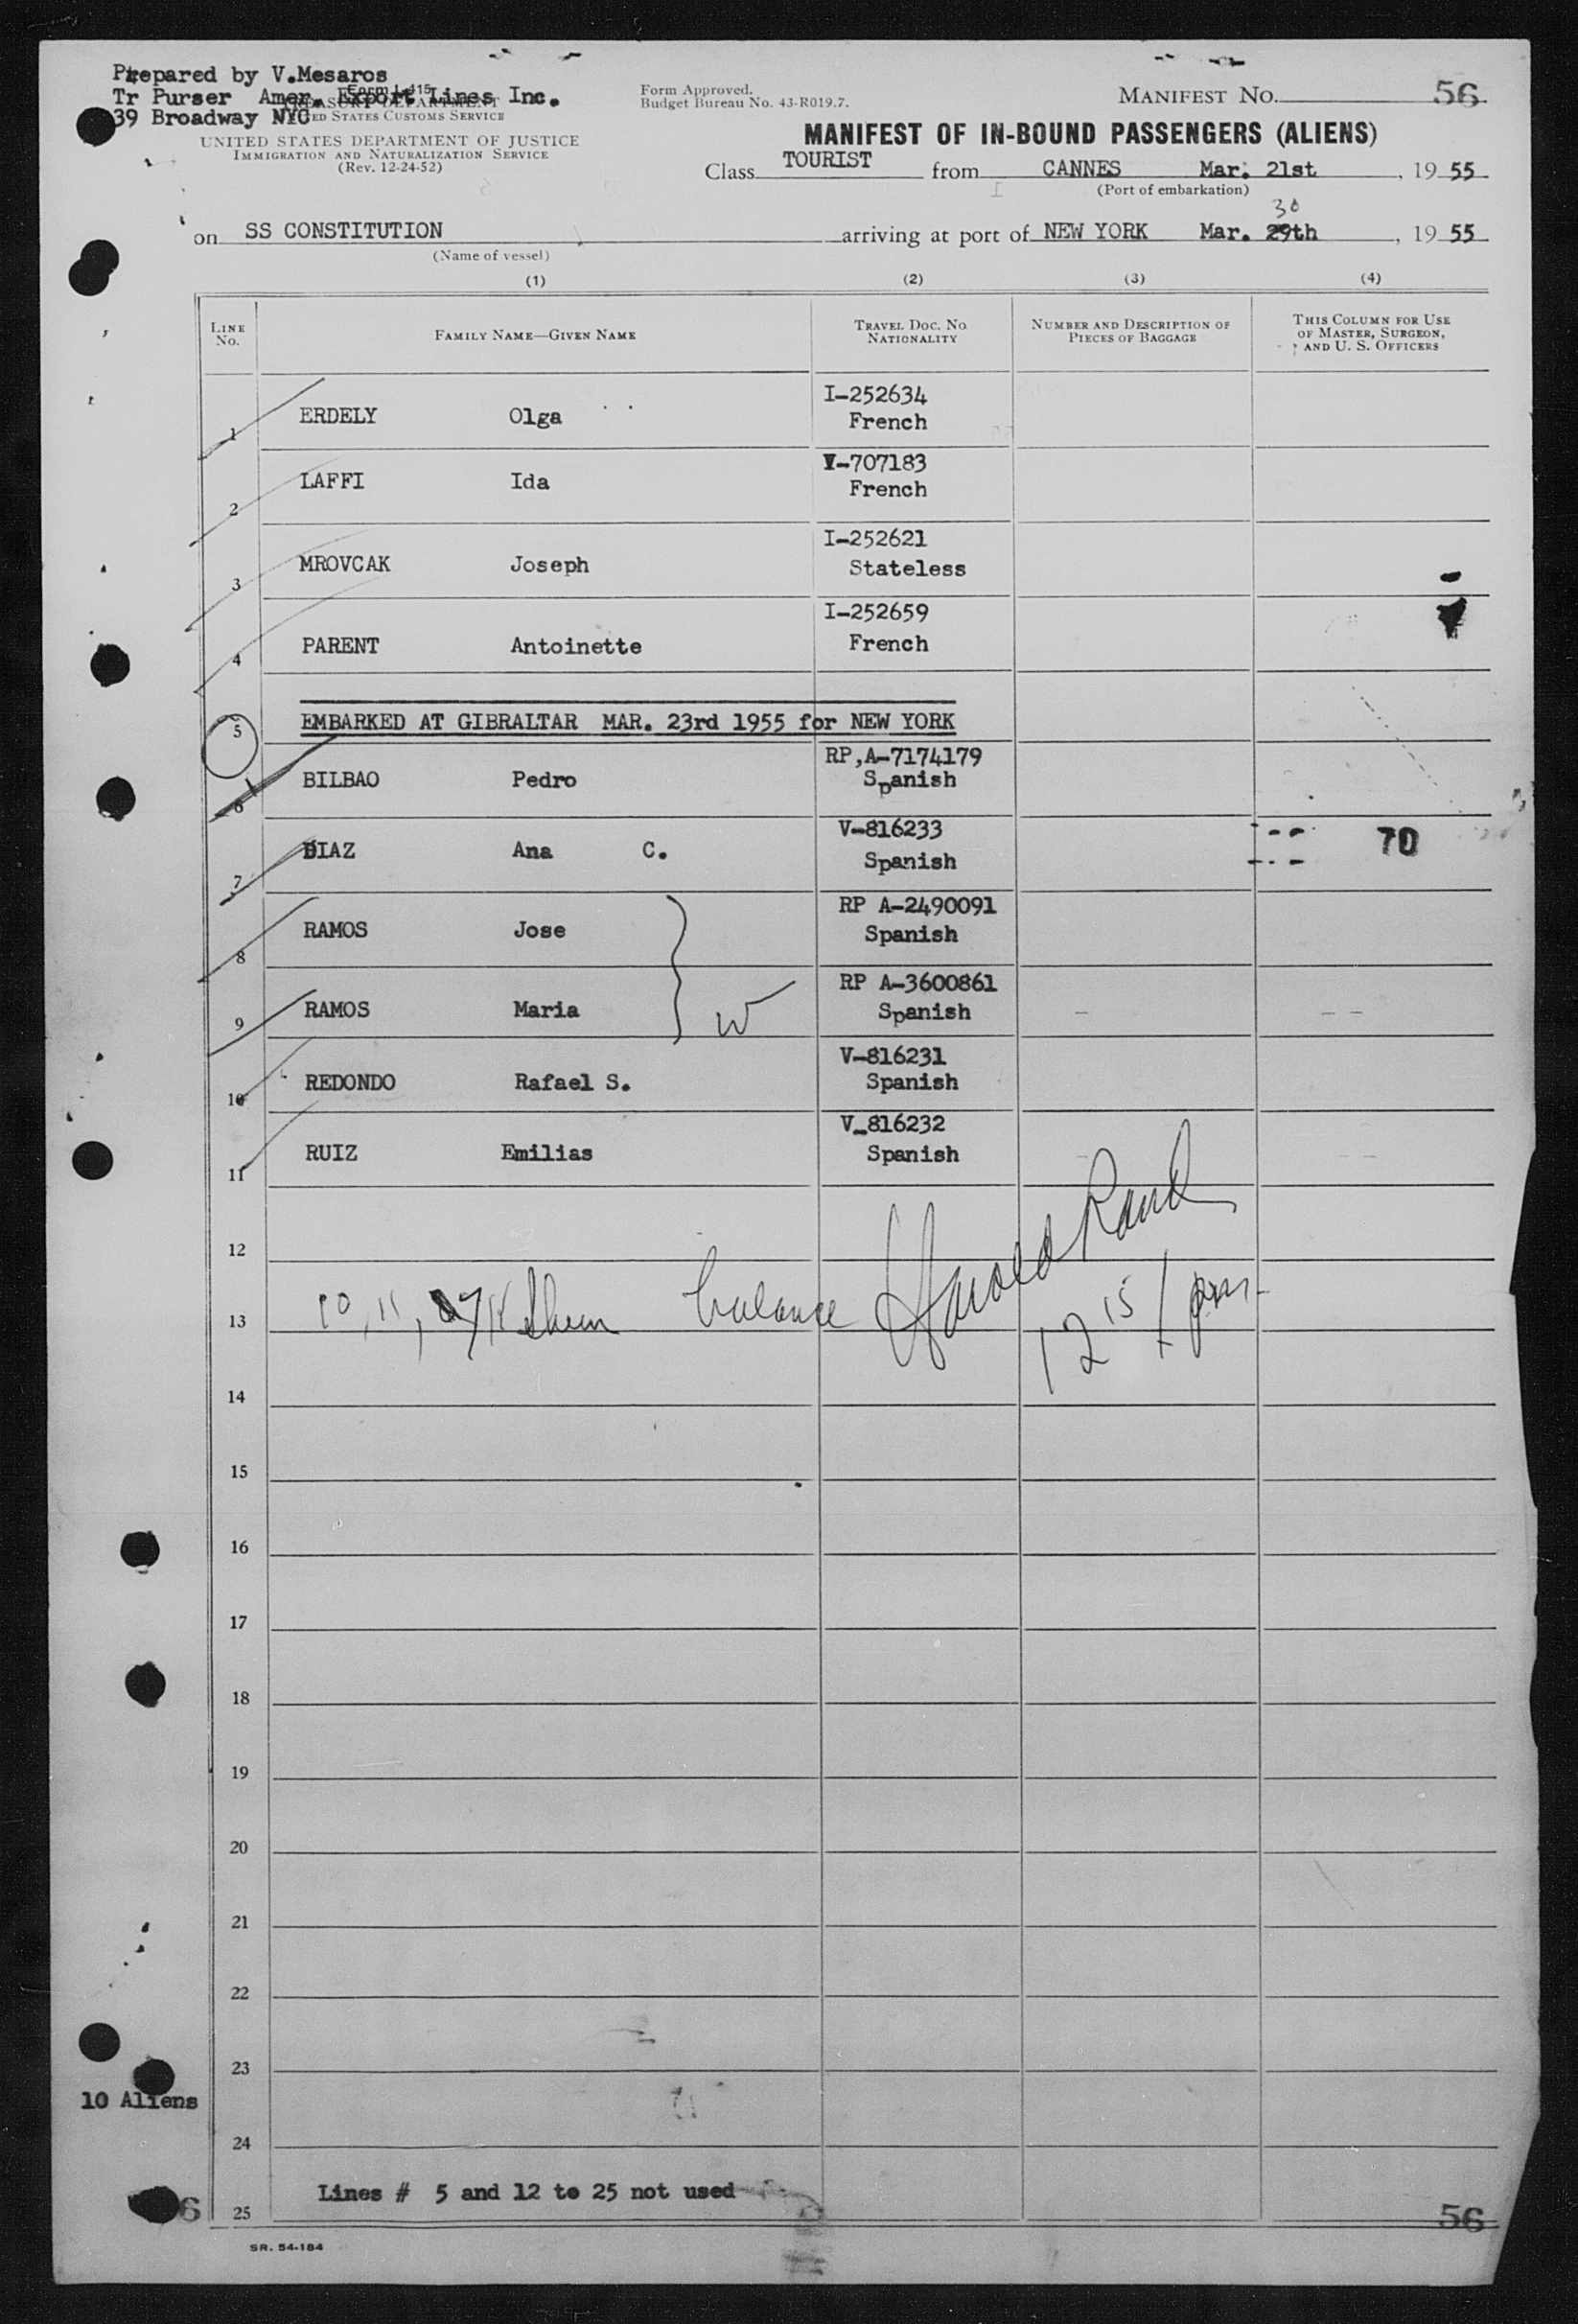 Prepared by V.Mesaros
Tr Purser Amer. Export Lines Inc.
39 Broadway NYC
Form I-415
TREASURY DEPARTMENT
UNITED STATES CUSTOMS SERVICE
UNITED STATES DEPARTMENT OF JUSTICE
IMMIGRATION AND NATURALIZATION SERVICE
(Rev. 12-24-52)
Form Approved.
Budget Bureau No. 43-R019.7.
MANIFEST NO. 56
MANIFEST OF IN-BOUND PASSENGERS (ALIENS)
Class TOURIST from CANNES Mar. 21st, 19 55
(Port of embarkation)
30
on SS CONSTITUTION arriving at port of NEW YORK Mar. 29th, 19 55
(Name of vessel)
(1) (2) (3) (4)
LINE NO. FAMILY NAME—GIVEN NAME TRAVEL DOC. NO. NATIONALITY NUMBER AND DESCRIPTION OF PIECES OF BAGGAGE THIS COLUMN FOR USE OF MASTER, SURGEON, AND U. S. OFFICERS
1 ERDELY Olga I-252634 French
2 LAFFI Ida V-707183 French
3 MROVCAK Joseph I-252621 Stateless
4 PARENT Antoinette I-252659 French
5 EMBARKED AT GIBRALTAR MAR. 23rd 1955 for NEW YORK
6 BILBAO Pedro RP,A-7174179 Spanish
7 DIAZ Ana C. V-816233 Spanish 70
8 RAMOS Jose RP A-2490091 Spanish
9 RAMOS Maria W RP A-3600861 Spanish
10 REDONDO Rafael S. V-816231 Spanish
11 RUIZ Emilias V-816232 Spanish
12
13 10, 11, balance Harold Rand 12 15/ pm
14
15
16
17
18
19
20
21
22
23
10 Aliens
24
25 Lines # 5 and 12 to 25 not used
6 56
SR. 54-184